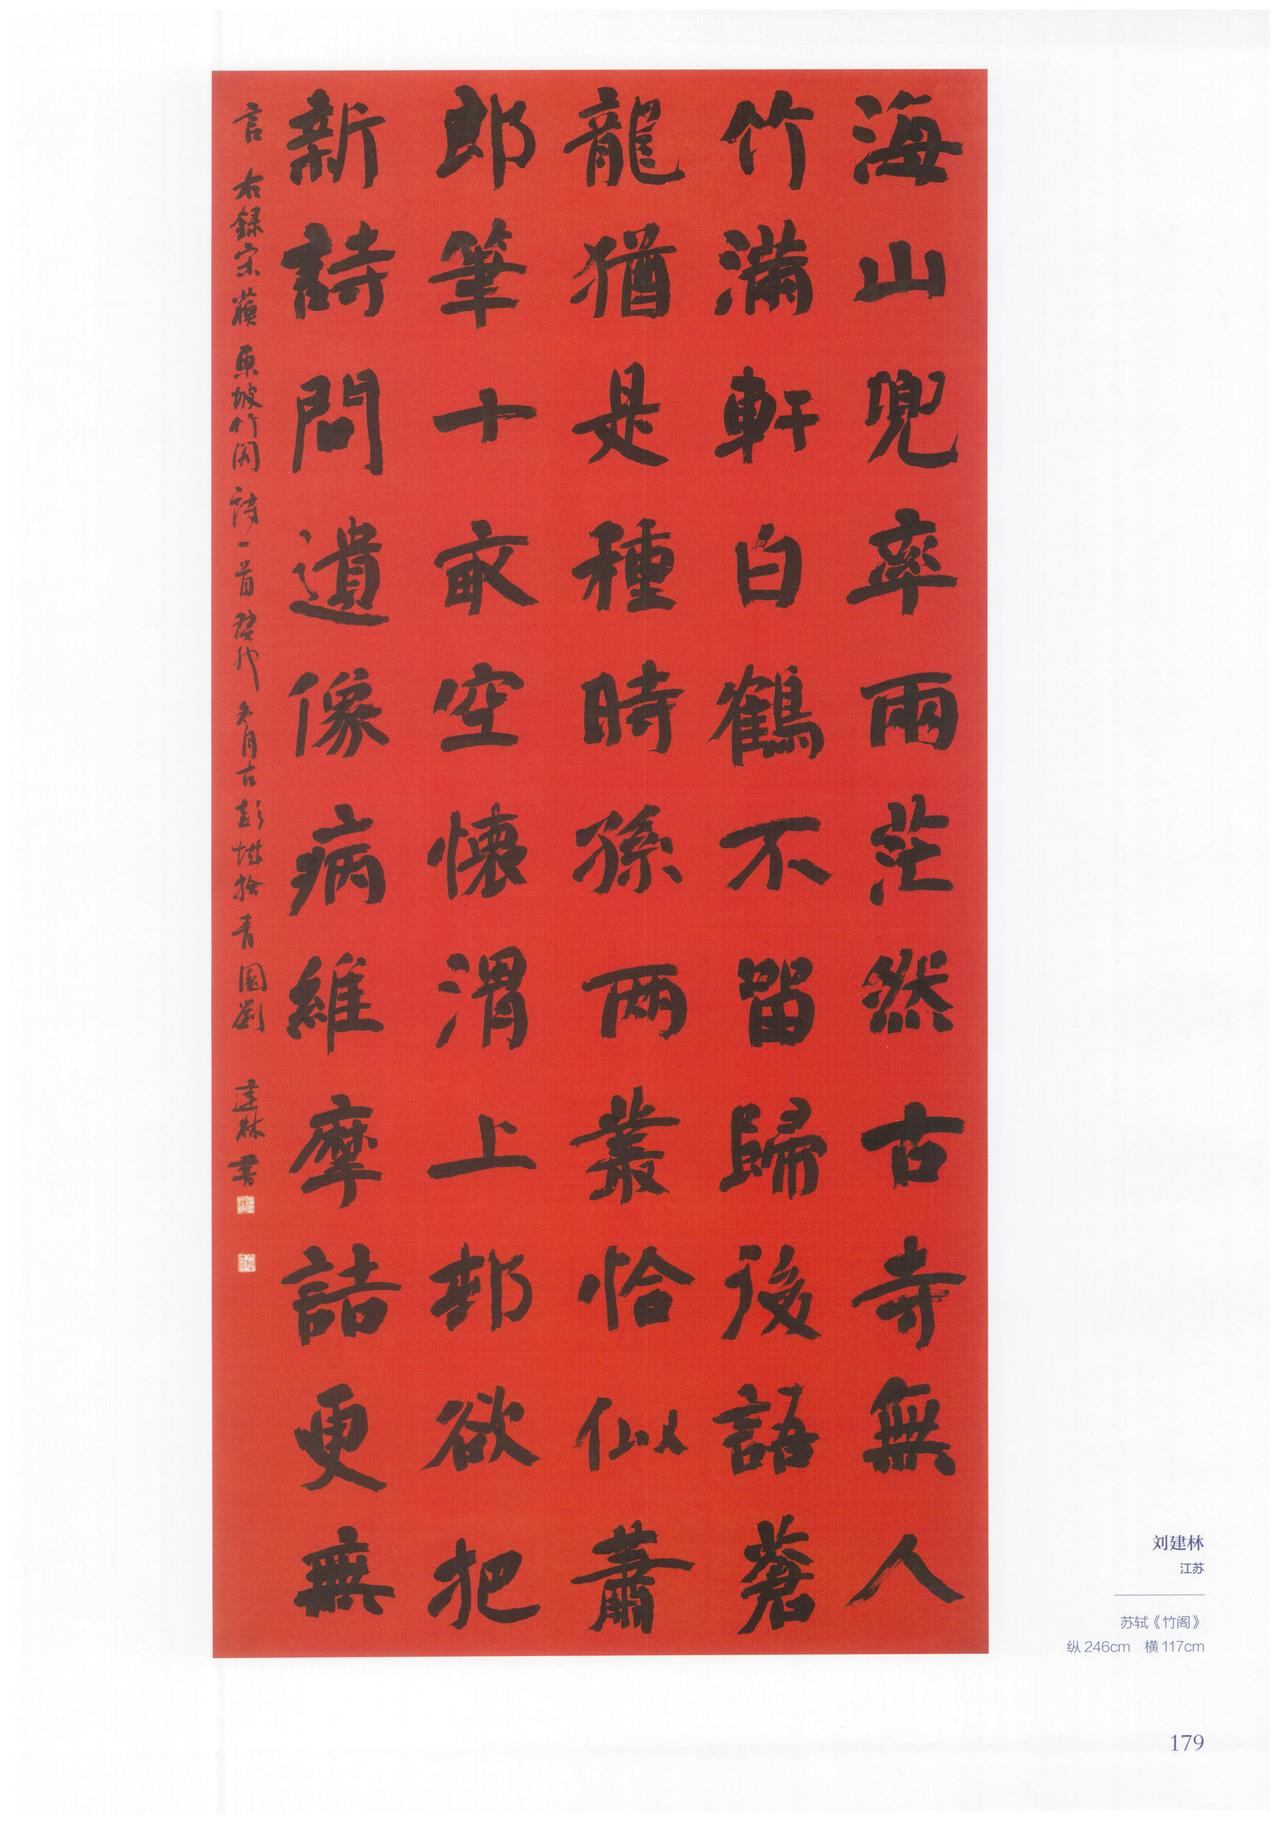 海山兜率兩茫然古寺無人
竹滿軒白鶴不留歸後語蒼
龍猶是種時孫兩叢恰似蕭
郎筆十畝空懷渭上邨欲把
新詩問遺像病維摩詰更無
言 右録宋蘇東坡竹閣詩一首 冬月古彭 拾青園劉建林書
刘建林
江苏
苏轼《竹阁》
纵 246cm 横 117cm
179